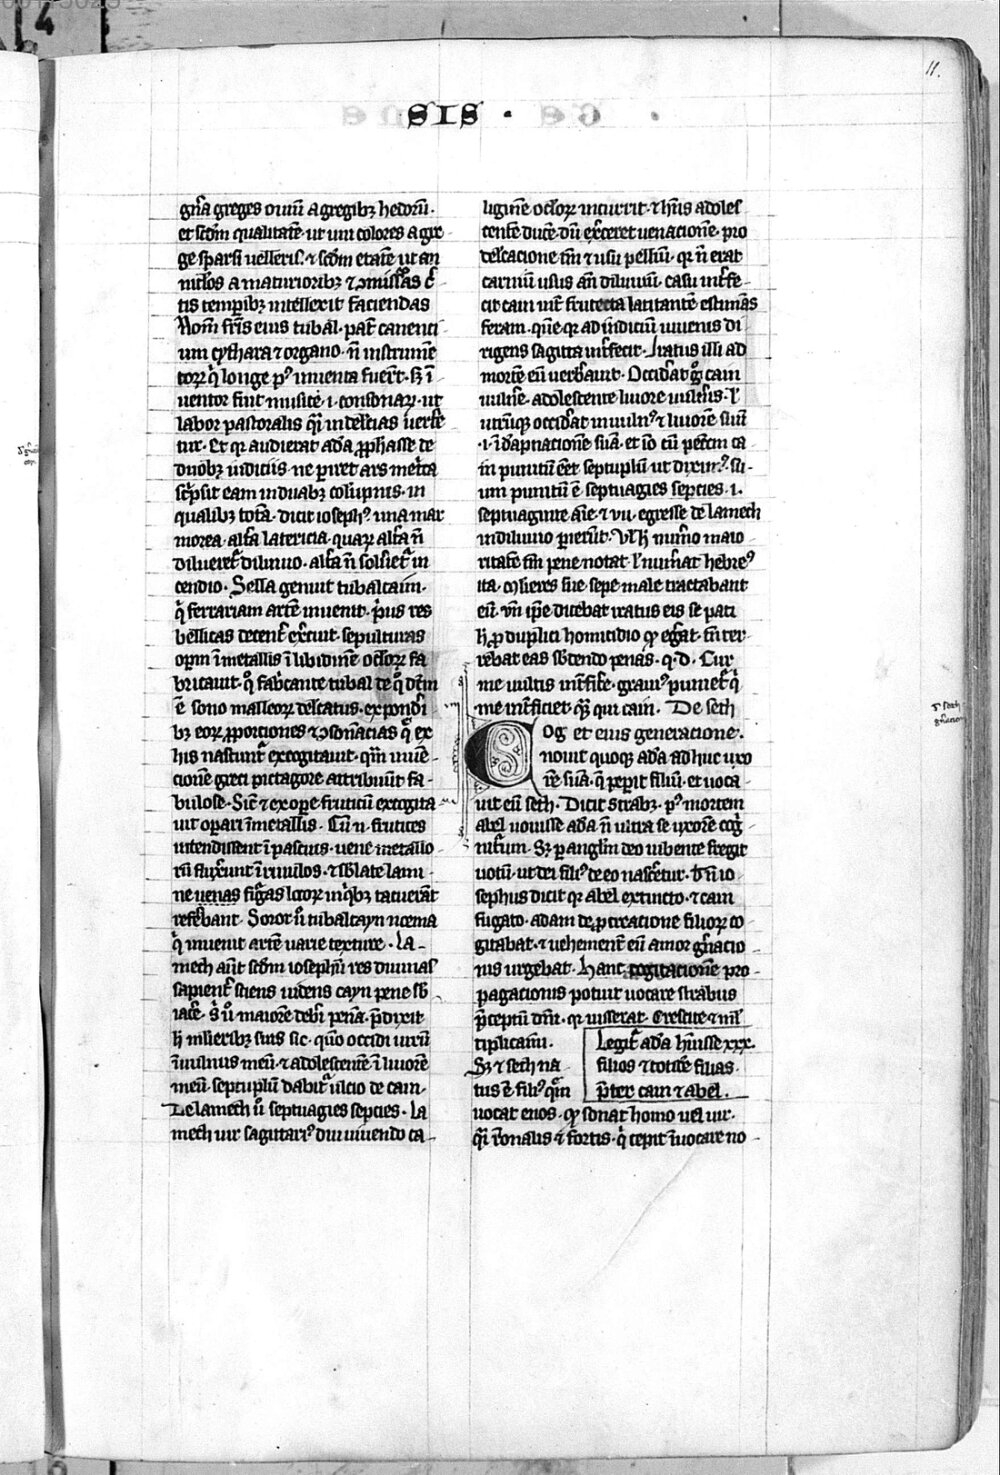 11.
SIS ·
gn̄a greges ouiū a gregibꝫ hedoꝝ·
et scd̄m qualitatē· ut uni colores a gre
ge sparsi uelleris· ⁊ scd̄m etatē ut an
niclos a maturioribꝫ ⁊ ꝯmissuras c̄
tis tempibꝫ intellexit faciendas
Nom̄ fr̄is eius tubal· pat̄ canenti
um cythara ⁊ organo· n̄ instrume
toꝝ q̄ longe pꝰ inuenta fuer̄t· sꝫ ī
uentor fuit musice· i· consonāꝝ· ut
labor pastoralis q̄i in delicias uerte
tur· Et qꝛ audierat adā ꝓphasse de
duobꝫ iudiciis· ne piret ars inuēta
sc̄psit eam in duabꝫ colūpnis· in
qualibꝫ totā· dicit iosephꝰ una mar
morea· alt̄a latericia· quaꝝ alt̄a n̄
diluer̄t̄ diluuio· alt̄a n̄ soluet̄ in
cendio· Sella genuit tubalcaim·
q̄ ferrariam artē inuenit· p̄us res
bellicas decent̄ ex̄cuit· sepulturas
opm̄ ī metallis ī libidinē ocl̄oꝝ fa
bricauit· q̊ fab̄cante tubal de q̊ dc̄m
ē sono malleoꝝ delc̄atus· ex pond̄i
bꝫ eoꝝ ꝓporciones ⁊ ꝯsonācias q̄ ex
his nascunt̄ excogitauit· q̄m inuē
cionē greci pictagore attribuūt fa
bulose· Sic̄ ⁊ ex ope fruticū excogita
uit opari ī metallis· Cū n̄ frutices
incendissent ī pascuis· uene metallo
rū fluxerunt ī riuulos· ⁊ sblate lami
ne uenas figuras locoꝝ in q̄bꝫ iacuerāt
referebant· Soror ū tubalcayn noema
q̄ inuenit artē uarie texture· La
mech aūt scd̄m iosephū res diuinas
sapient̄ sciens uidens cayn pene sb̄
iacē· s ū maiorē deb̄i penā· p̄dixit
h̄ mulieribꝫ suis sic· qm̄ occidi uirū
ī uulnus meū· ⁊ adolescentē ī liuorē
meū· septuplū dabit̄ ulcio de cain·
De lamech ū septuagies sepcies· La
mech uir sagittariꝰ diu uiuendo ca
liginē ocl̄oꝝ incurrit· ⁊ hn̄s adoles
centē ducē· dū ex̄ceret uenacionē· pro
delc̄acione tm̄ ⁊ usu pelliū· qꝛ n̄ erat
carniū usus an̄ diluuiū· casu int̄fe
cit cain int̄ frutecta latitantē estimās
feram· quē qꝛ ad indiciū iuuenis di
rigens sagitta int̄fecit· Iratus illi ad
mortē eū uerb̄auit· Occid̄at g̊ cain
uulnē· adolescentē liuore uulnīs· l̄
utrūqꝫ occid̄at in uulnꝰ ⁊ liuorē suū
·i· ī dāpnacionē suā· et iō cū pctm̄ ca
in punitū eēt septuplū ut diximꝰ· su
um punitū ē septuagies sepcies· i·
septuaginte aīe ⁊ vii· egresse de lamech
in diluuio pierūt· Vl̄ h̄ num̄o maio
ritatē tm̄ pene notat· l̄ nuīrat hebreꝰ
ita· Mlieres sue sepe male tractabant
eū· vn̄ ip̄e dicebat iratus eis se pati
h̄ ꝓ duplici homicidio qꝫ egerat· tn̄ ter
rebat eas sb̄tendo penas· q· d· Cur
me uultis int̄fice· grauiꝰ puniet̄ q̄
me int̄ficiet qꝫ qui cain· De seth
Cog et eius generacione·
nouit quoqꝫ adā adhuc uxo
rē suā· q̄ pepit filiū· et uoca
uit eū seth· Dicit strabꝫ· pꝰ mortem
abel uouisse adā n̄ ultra se uxorē coḡ
niturum· Sꝫ p angl̄m deo iubente fregit
uotū· ut dei filiꝰ de eo nascetur· V̄n̄ io
sephus dicit qꝛ abel extincto· ⁊ cain
fugato· adam de ꝓcreacione filioꝝ co
gitabat· ⁊ uehement̄ eū amor gn̄acio
nis urgebat· Hanc cogitacionē pro
pagacionis potuit uocare strabus
p̄ceptū dn̄i· qꝛ iusserat· Crescite ⁊ ml̄
tiplicamī·
Legit̄ adā hūisse xxx·
filios ⁊ totidē filias·
p̄ter cain ⁊ abel·
Sꝫ ⁊ seth na
tus ē filiꝰ q̄m
uocat enos· qꝫ sonat homo uel uir·
q̄i r̄onalis ⁊ fortis· q̄ cepit īuocare no